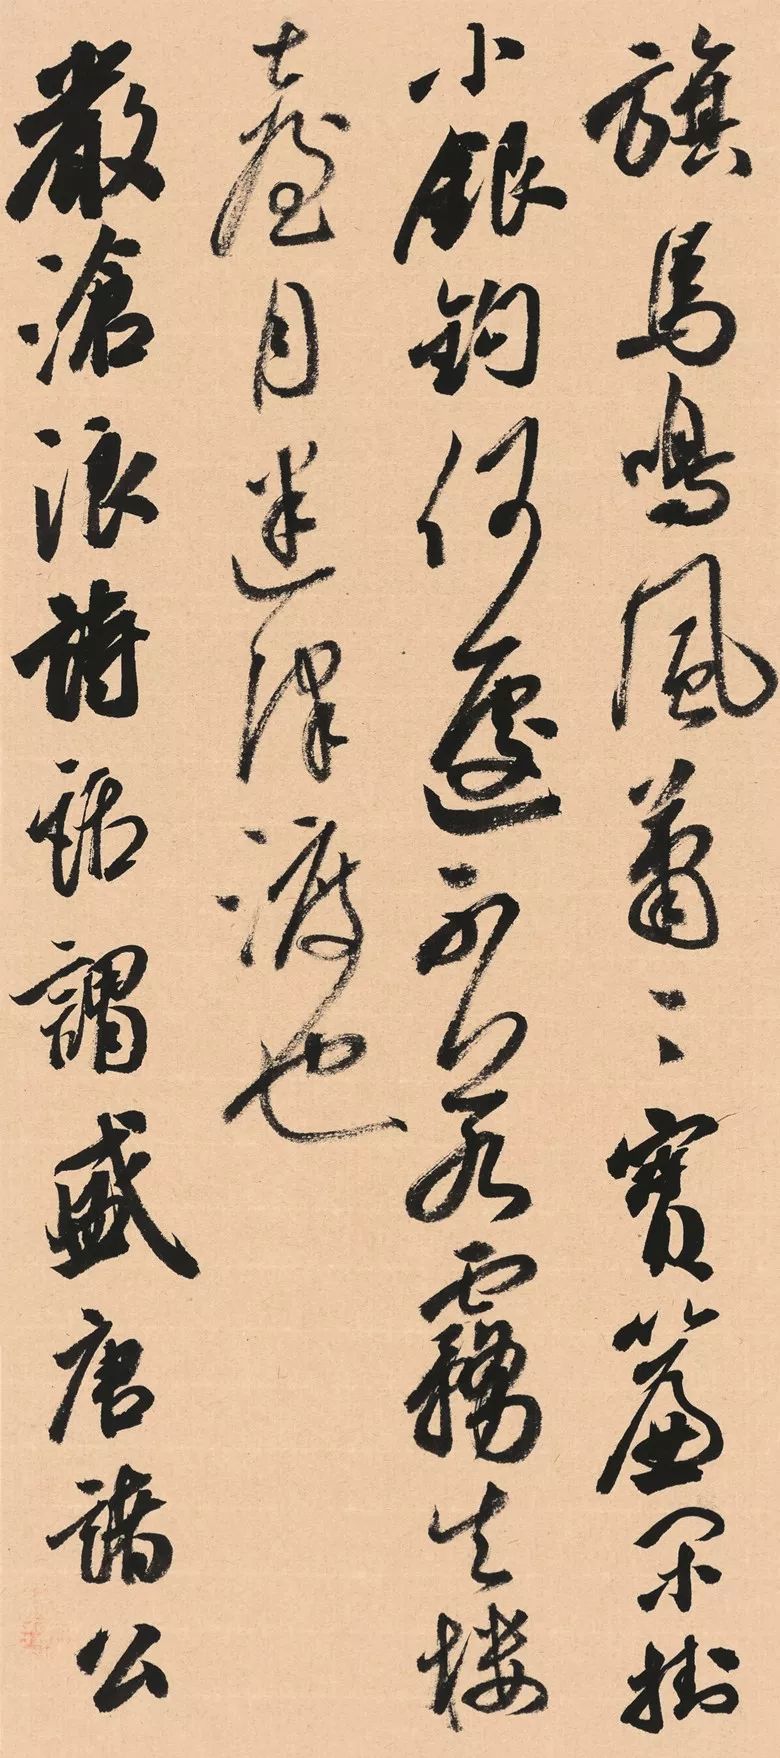 旗馬鳴風蕭〻寶簾閑掛
小銀鈎何遽不若霧失樓
臺月迷津渡也
嚴滄浪詩話謂盛唐諸公